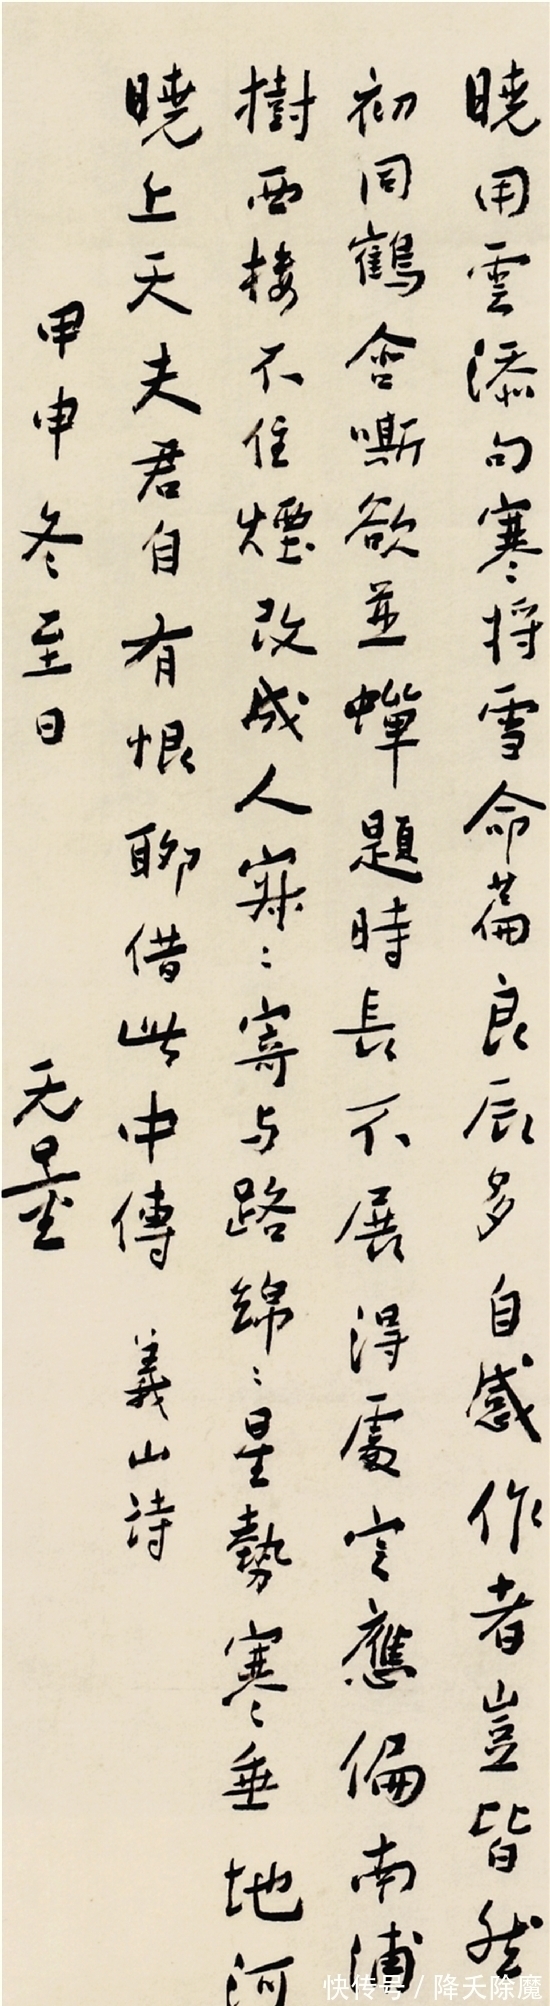 曉用雲添句寒將雪命篇良辰多自感作者豈皆然
初同鶴含嘶欲並蟬題時長不展得處定應偏南浦
樹西樓不住煙改成人寂〻寄与路綿〻星勢寒垂地河
曉上天夫君自有恨聊借此中傳 義山詩
甲申冬至日 无量
快传号/降夭除魔